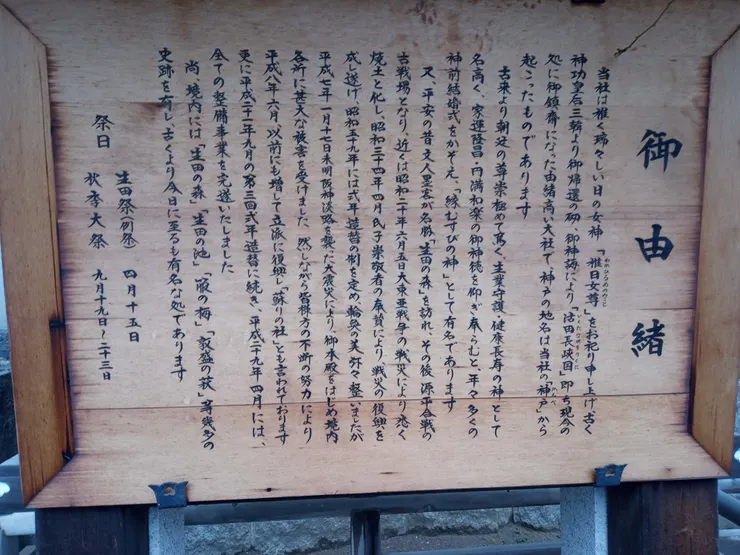 御由緒
当社は稚く瑞々しい日の女神『稚日女尊』をお祀り申し上げ古く
わかひるめのみこと
神功皇后三韓より御帰還の砌、御神誨により「活田長峡国」即ち現今の
いくたながをのくに
処に御鎮齋になった由緒高い大社で、神戸の地名は当社の「神戸」から
かんべ
起こったものであります
古来より朝廷の尊崇極めて篤く、生業守護、健康長寿の神として
名高く、家運隆昌・円満和楽の御神徳を仰ぎ奉らむと、年々多くの
神前結婚式をかぞえ、「縁むすびの神」として有名であります
又、平安の昔文人墨客が名勝「生田の森」を訪れ、その後源平合戦の
古戦場となり、近くは昭和二十年六月五日大東亜戦争の戦災により悉く
焼土と化し、昭和三十四年四月氏子崇敬者の奉賛により戦災の復興を
成し遂げ、昭和五十九年には式年造替の制を定め輪奐の美弥々整いましたが
平成七年一月十七日未明阪神淡路を襲った大震災により、御本殿をはじめ境内
各所に甚大な被害を受けました、然しながら皆様方の不断の努力により
平成八年六月以前にも増して立派に復興し「蘇りの社」とも言われております
更に平成二十一年九月の第三回式年造替に続き、平成二十九年四月には、
全ての整備事業を完遂いたしました
尚、境内には「生田の森」「生田の池」「箙の梅」「敦盛の萩」等幾多の
史跡を有し、古くより今日に至るも有名な処であります
祭日 生田祭(例祭) 四月十五日
秋季大祭 九月十九日〜二十三日